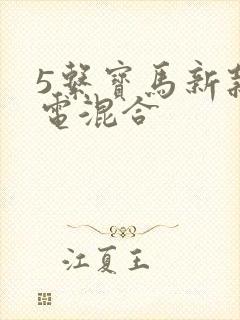 5繫寶馬新款
電混合
江夏王